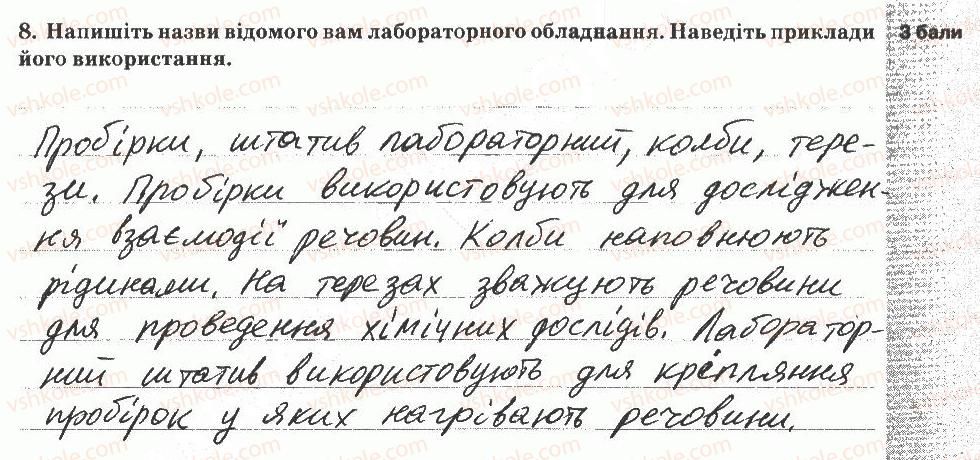 8. Напишіть назви відомого вам лабораторного обладнання. Наведіть приклади
його використання.
3 бали
Пробірки, штатив лабораторний, колби, тере-
зи. Пробірки використовують для досліджен-
ня взаємодії речовин. Колби наповнюють
рідинами. На терезах зважують речовини
для проведення хімічних дослідів. Лаборатор-
ний штатив використовують для кріпляння
пробірок у яких нагрівають речовини.
vshkole.com